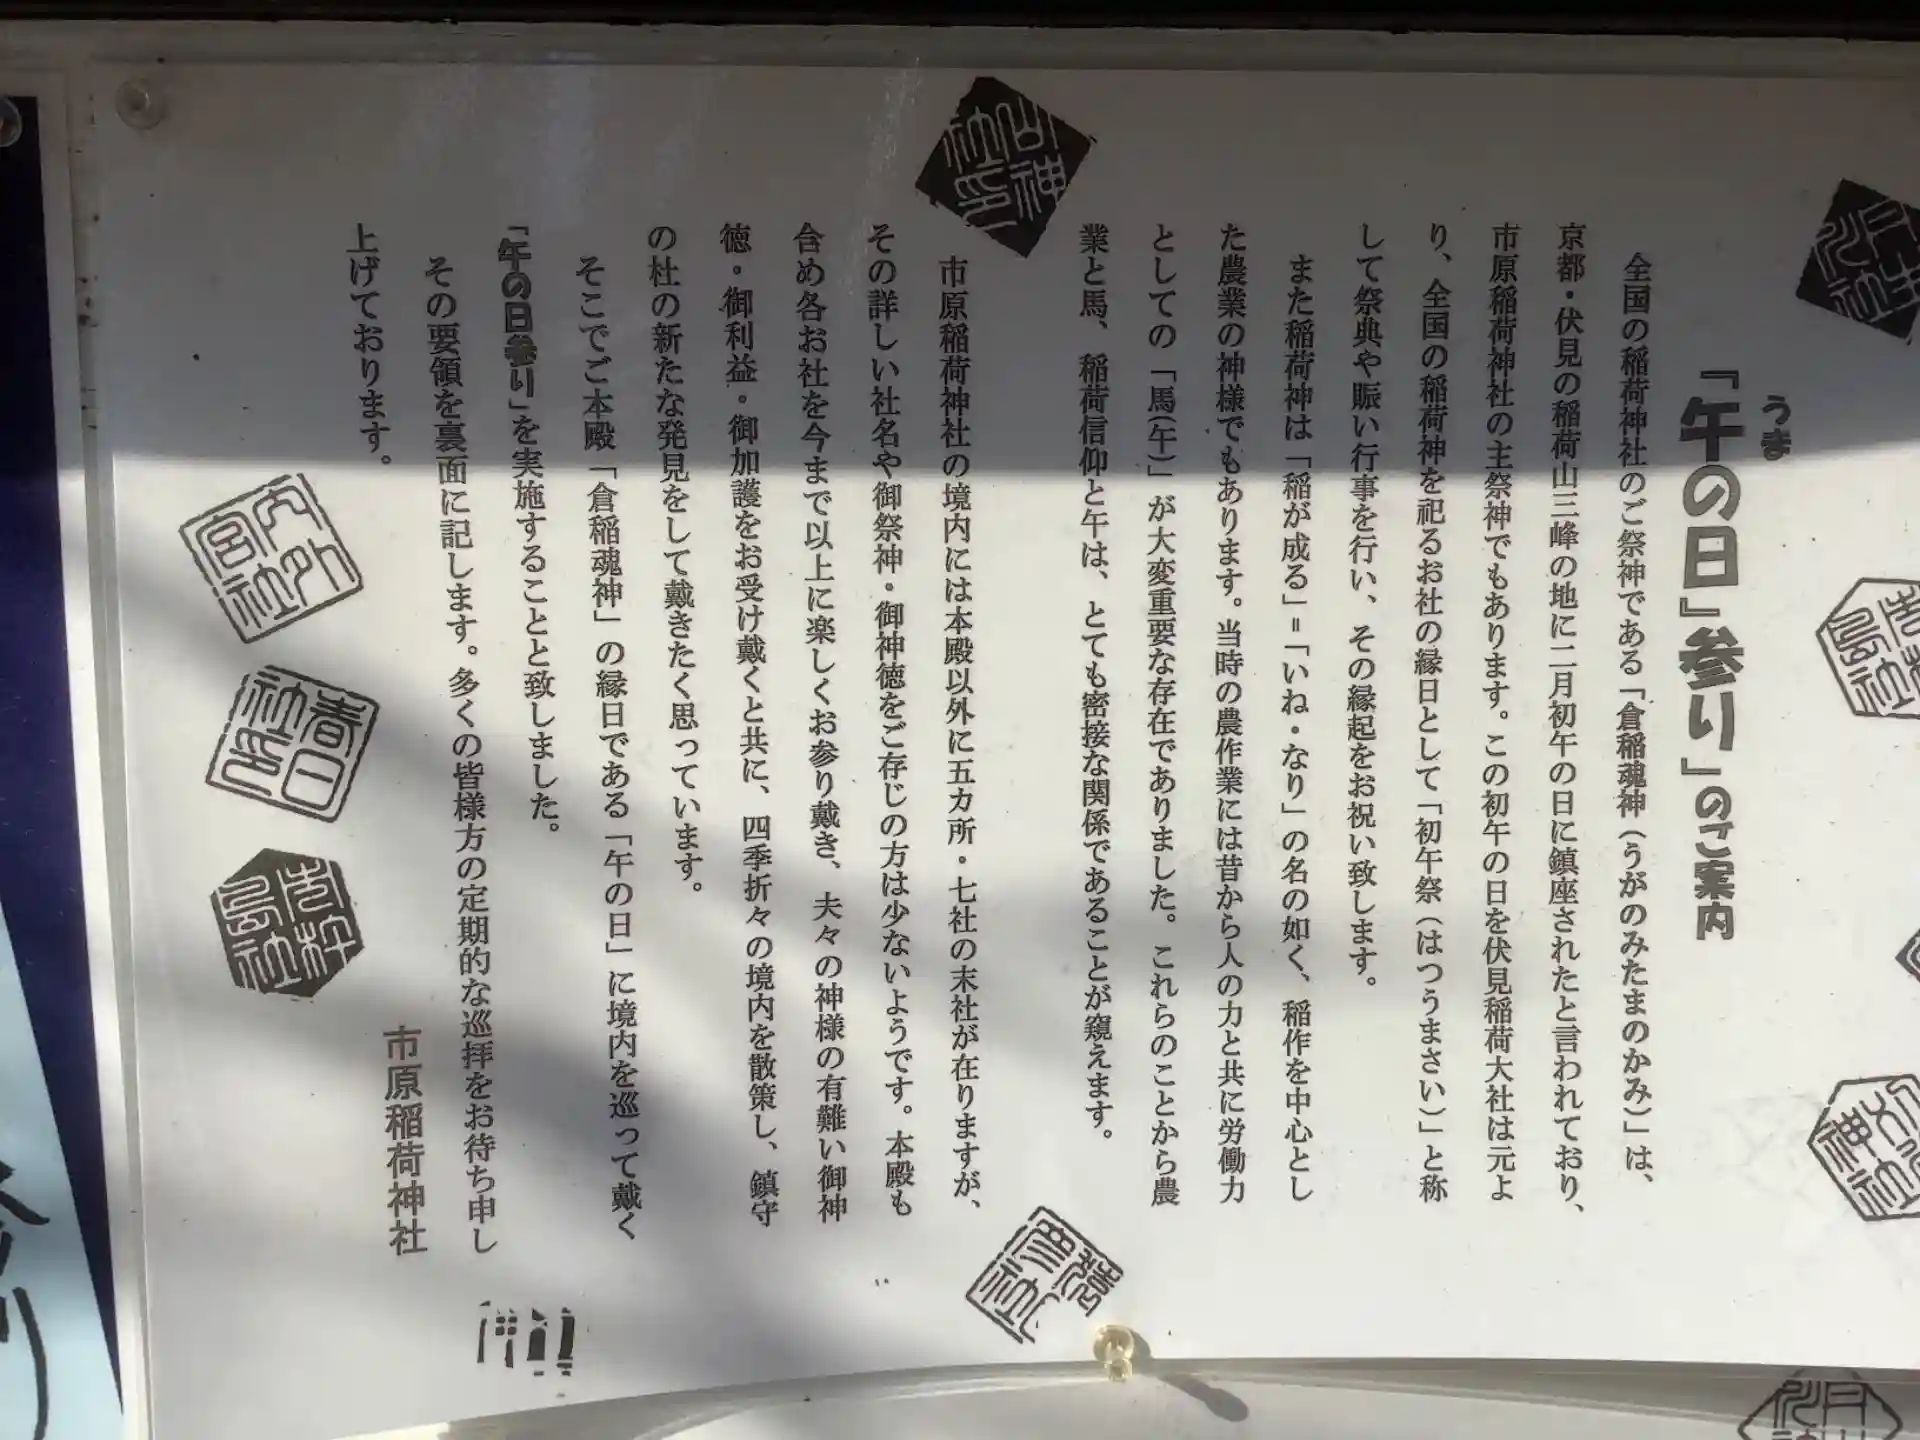 うま
『午の日』参り」のご案内
全国の稲荷神社のご祭神である「倉稲魂神（うがのみたまのかみ）」は、
京都・伏見の稲荷山三峰の地に二月初午の日に鎮座されたと言われており、
市原稲荷神社の主祭神でもあります。この初午の日を伏見稲荷大社は元よ
り、全国の稲荷神を祀るお社の縁日として「初午祭（はつうまさい）」と称
して祭典や賑い行事を行い、その縁起をお祝い致します。
また稲荷神は「稲が成る」＝「いね・なり」の名の如く、稲作を中心とし
た農業の神様でもあります。当時の農作業には昔から人の力と共に労働力
としての「馬（午）」が大変重要な存在でありました。これらのことから農
業と馬、稲荷信仰と午は、とても密接な関係であることが窺えます。
市原稲荷神社の境内には本殿以外に五カ所・七社の末社が在りますが、
その詳しい社名や御祭神・御神徳をご存じの方は少ないようです。本殿も
含め各お社を今まで以上に楽しくお参り戴き、夫々の神様の有難い御神
徳・御利益・御加護をお受け戴くと共に、四季折々の境内を散策し、鎮守
の杜の新たな発見をして戴きたく思っています。
そこでご本殿「倉稲魂神」の縁日である「午の日」に境内を巡って戴く
「午の日参り」を実施することと致しました。
その要領を裏面に記します。多くの皆様方の定期的な巡拝をお待ち申し
上げております。
市原稲荷神社
山神
社印
春日
社印